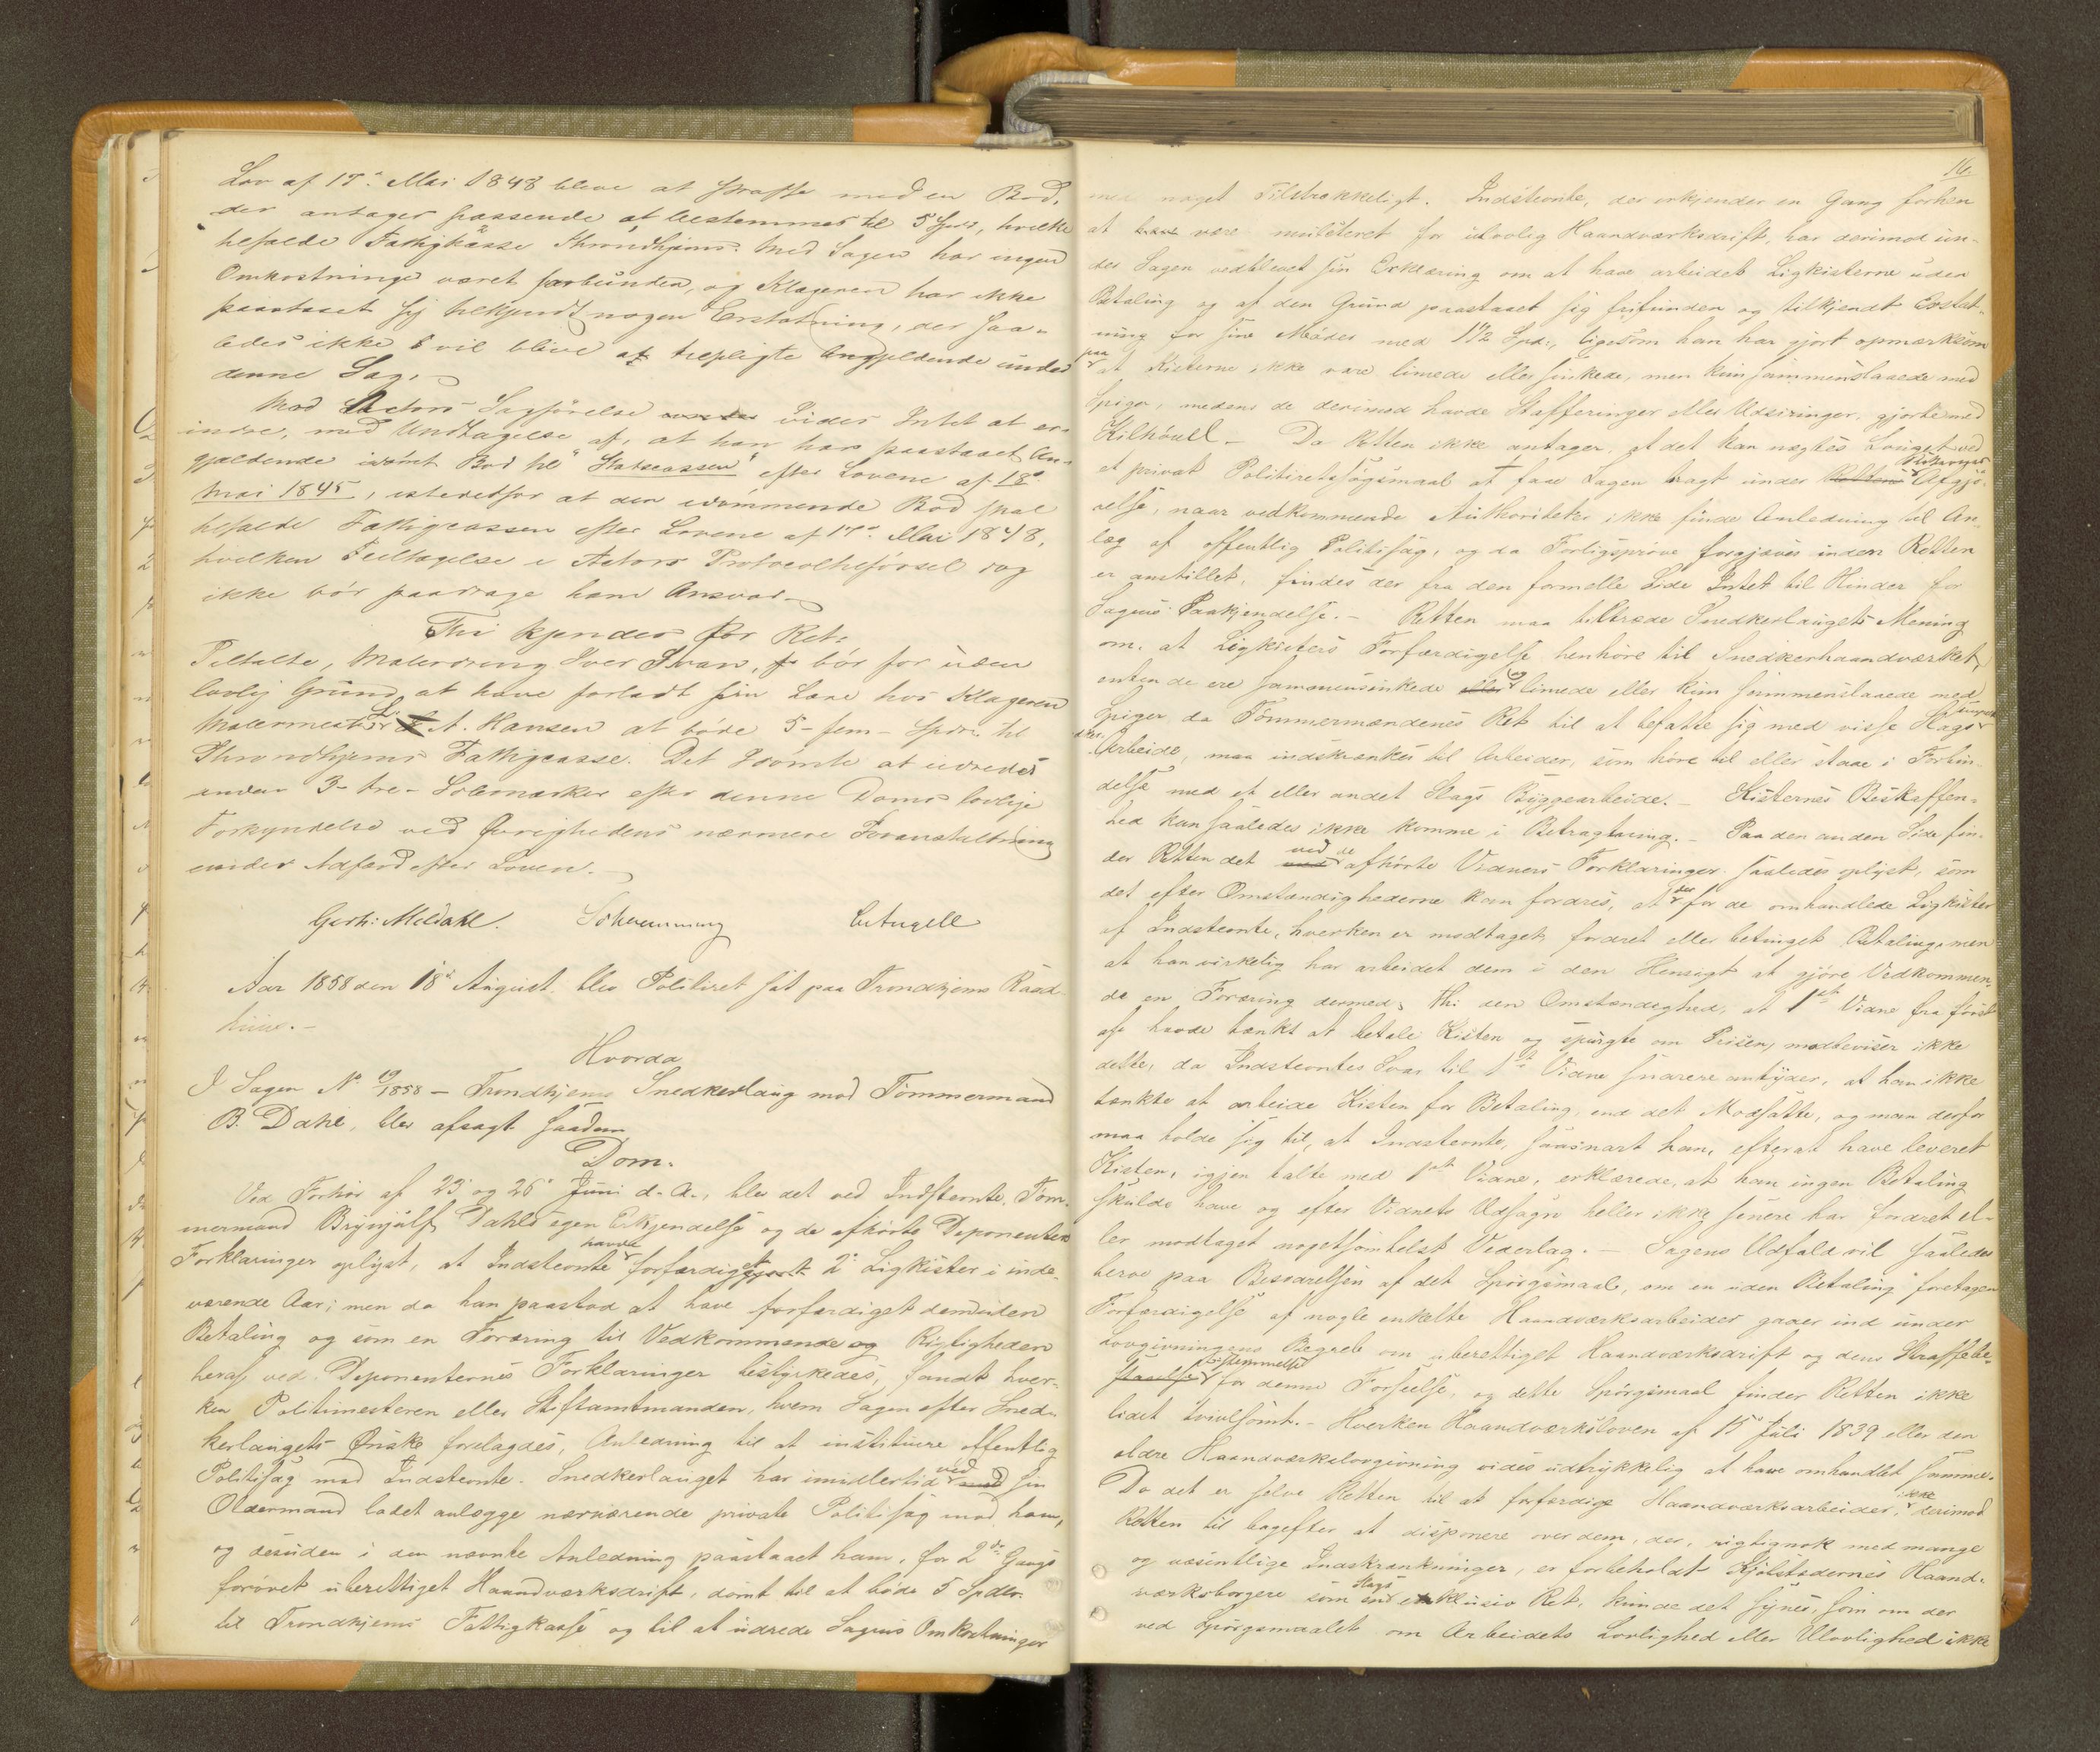 Lov af 17de Mai 1848 bleve at straffe med en Bod,
der antages passende at bestemmes til 5 Spd, hvilke
tilfalde Fattigkasse Throndhjems. Med Sagen har ingen
Omkostninger været forbunden, og Klageren har ikke
paastaaet sig tilkjendt nogen Erstatning, der saa-
ledes ikke vil blive at tilpligte Angjeldende under
denne Sag.
Mod Actors Sagførelse vides Intet at er-
indre, med Undtagelse af, at han har paastaaet An-
gjældende idømt Bod til "Statscassen" efter Lovene af 18de
Mai 1845, istedetfor at den idømmende Bod skal
tilfalde Fattigcassen efter Lovene af 17de Mai 1848,
hvilken Feiltagelse i Actors Protocoltilførsel dog
ikke bør paadrage ham Ansvar.
Thi kjendes for Ret:
Tiltalte, Malerdreng Iver Svan, bør for uden
lovlig Grund at have forladt sin Lære hos Klageren
Malermester L. A. Hansen at bøde 5 - fem - Spdlr. til
Throndhjems Fattigcasse. Det Idømte at udredes
inden 3 - tre - Solemærker efter denne Doms lovlige
Forkyndelse ved Øvrighedens nærmere Foranstaltning
under Adfærd efter Loven.
Gerh: Meldahl. Schwenning Angell
Aar 1858 den 18de August blev Politiret sat paa Trondhjems Raad-
huus.
Hvorda
I Sagen No 19/1858 - Trondhjems Snedkerlaug mod Tømmermand
B. Dahl, blev afsagt saadan
Dom.
Ved Forhør af 23de og 26de Juni d. A., blev det ved Indstevnte, Tøm-
mermand Brynjulf Dahls egen Erkjendelse og de afhørte Deponenters
Forklaringer oplyst, at Indstevnte havde forfærdiget 2de Ligkister i inde-
værende Aar; men da han paastod at have forfærdiget dem uden
Betaling og som en Foræring til Vedkommende og Rigtigheden
heraf ved Deponenternes Forklaringer bestyrkedes, fandt hver-
ken Politimesteren eller Stiftamtmanden, hvem Sagen efter Sned-
kerlaugets Ønske forelagdes, Anledning til at instituere offentlig
Politisag mod Indstevnte. Snedkerlauget har imidlertid ved sin
Oldermand ladet anlægge nærværende private Politisag mod ham,
og desuden i den nævnte Anledning paastaaet ham, for 2den Gangs
forøvet uberettiget Haandværksdrift, dømt til at bøde 5 Spdlr.
til Trondhjems Fattigkasse og til at udrede Sagens Omkostninger
16
med noget Tilstrækkeligt. Indstevnte, der erkjender en Gang forhen
at være mulcteret for ulovlig Haandværksdrift, har derimod un-
der Sagen vedblevet sin Erklæring om at have arbeidet Ligkisterne uden
Betaling og af den Grund paastaaet sig frifunden og tilkjendt Erstat-
ning for sine Møder med 1 1/2 Spd., ligesom han har gjort opmærksom
paa at Kisterne ikke vare limede eller sinkede, men kun sammenslaaede med
Spiger, medens de derimod havde Stafferinger eller Udsiringer, gjorte med
Kilhøvel. - Da Retten ikke antager, at det kan nægtes Lauget ved
et privat Politiretssøgsmaal at faae Sagen bragt under Afgjø-
relse, naar vedkommende Authoriteter ikke finde Anledning til An-
læg af offentlig Politisag, og da Forligsprøve forgjæves inden Retten
er anstillet, findes der fra den formelle Side Intet til Hinder for
Sagens Paakjendelse. - Retten maa tiltræde Snedkerlaugets Mening
om, at Ligkisters Forfærdigelse henhøre til Snedkerhaandværket,
enten de ere sammensinkede og limede eller kun sammenslaaede med
Spiger, da Tømmermændenes Ret til at befatte sig med visse Slags
Arbeide, maa indskrænkes til Arbeider, som høre til eller staae i Forbin-
delse med et eller andet Slags Byggearbeide. - Kisternes Beskaffen-
hed kan saaledes ikke komme i Betragtning. - Paa den anden Side fin-
der Retten det ved de afhørte Vidners Forklaringer saaledes oplyst, som
det efter Omstændighederne kan fordres, at der for de omhandlede Ligkister
af Indstevnte, hverken er modtaget, fordret eller betinget Betaling, men
at han virkelig har arbeidet dem i den Hensigt at gjøre Vedkommen-
de en Foræring dermed, thi den Omstændighed, at 1ste Vidne fra først
af havde tænkt at betale Kisten og spurgte om Prisen, modbeviser ikke
dette, da Indstevntes Svar til 1ste Vidne snarere antyder, at han ikke
tænkte at arbeide Kisten for Betaling, end det Modsatte, og man derfor
maa holde sig til, at Indstevnte, saasnart han, efterat have leveret
Kisten, igjen talte med 1ste Vidne, erklærede, at han ingen Betaling
skulde have og efter Vidnets Udsagn heller ikke senere har fordret el-
ler modtaget nogetsomhelst Vederlag. - Sagens Udfald vil saaledes
beroe paa Besvarelsen af det Spørgsmaal, om en uden Betaling foretagen
Forfærdigelse af nogle enkelte Haandværksarbeider gaaer ind under
Lovgivningens Begreb om uberettiget Haandværksdrift og dens Straffebe-
stemmelse for denne Forseelse, og dette Spørgsmaal finder Retten ikke
lidet tvivlsomt. - Hverken Haandværksloven af 15de Juli 1839 eller den
ældre Haandværkslovgivning vides udtrykkelig at have omhandlet samme.
Da det er selve Retten til at forfærdige Haandværksarbeider, ikke derimod
Retten til bagefter at disponere over dem, der, rigtignok med mange
og væsentlige Indskrænkninger, er forbeholdt Kjøbstædernes Haand-
værksborgere som en Slags exklusiv Ret, kunde det synes, som om der
ved Spørgsmaalet om Arbeidets Lovlighed eller Ulovlighed ikke